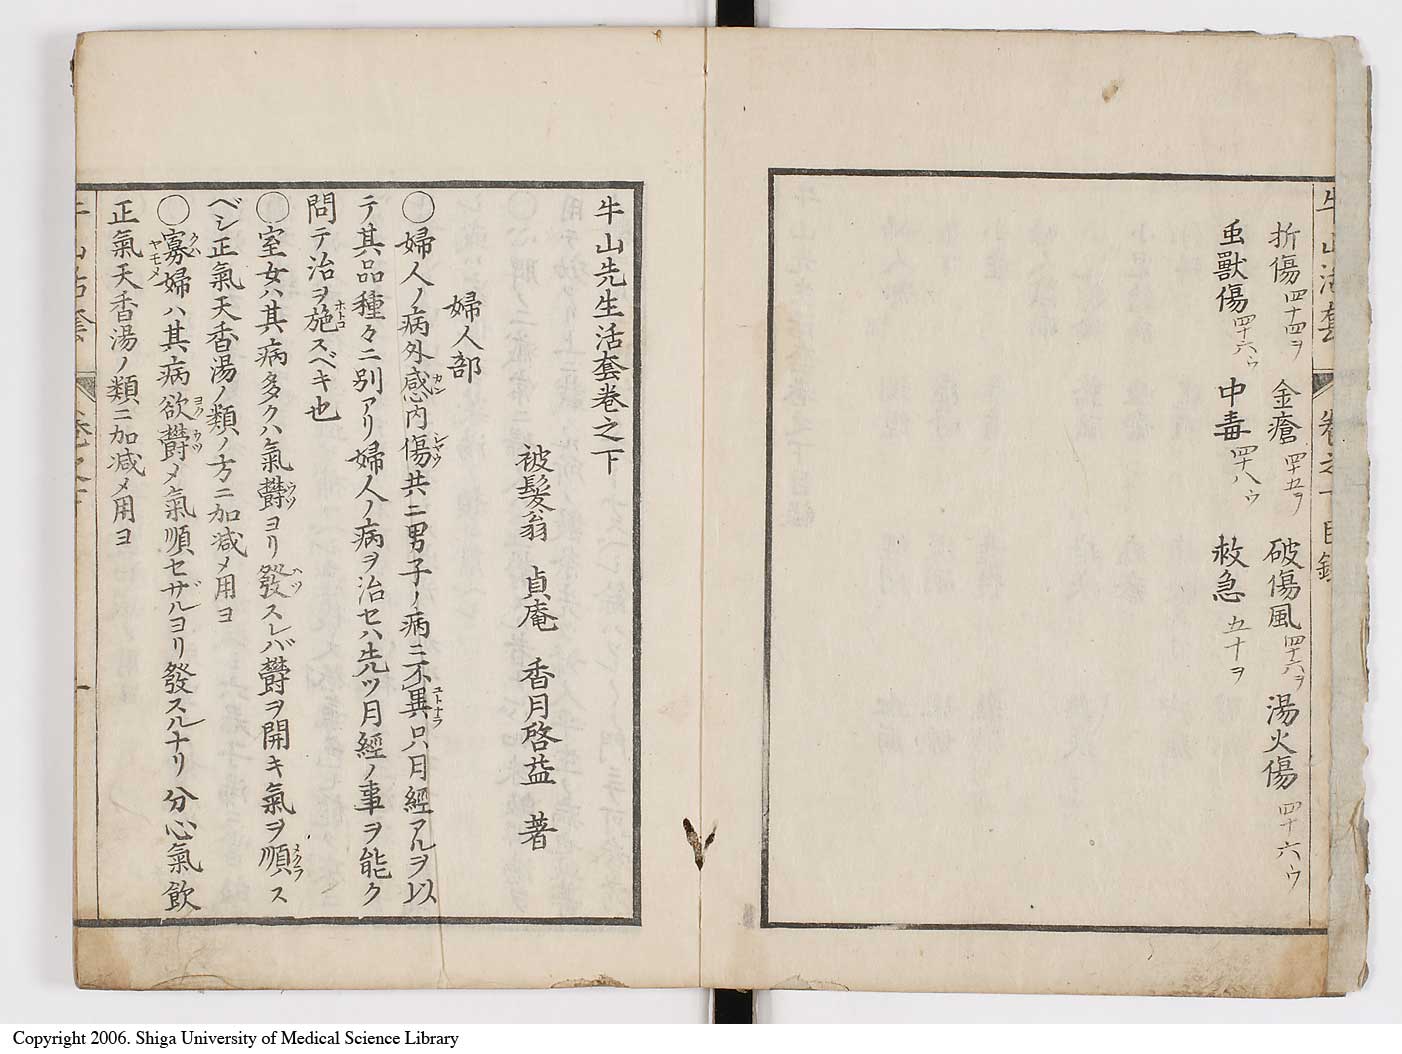 牛山活套 卷之下目錄
折傷四十四ヲ 金瘡四十五ヲ 破傷風四十六ヲ 湯火傷四十六ウ
虫獸傷四十六ウ 中毒四十八ウ 救急五十ヲ
牛山先生活套卷之下
被髮翁 貞庵 香月啓益 著
婦人部
〇婦人ノ病外感内傷共ニ男子ノ病ニ不異只月經アルヲ以
テ其品種々ニ別アリ婦人ノ病ヲ治セハ先ツ月經ノ事ヲ能ク
問テ治ヲ施スベキ也
〇室女ハ其病多クハ氣欝ヨリ發スレバ欝ヲ開キ氣ヲ順ス
ベシ正氣天香湯ノ類ノ方ニ加減メ用ヨ
〇寡婦ハ其病欲欝メ氣順セザルヨリ發スルナリ分心氣飲
正氣天香湯ノ類ニ加減メ用ヨ
牛山活套 卷之下 一
Copyright 2006. Shiga University of Medical Science Library